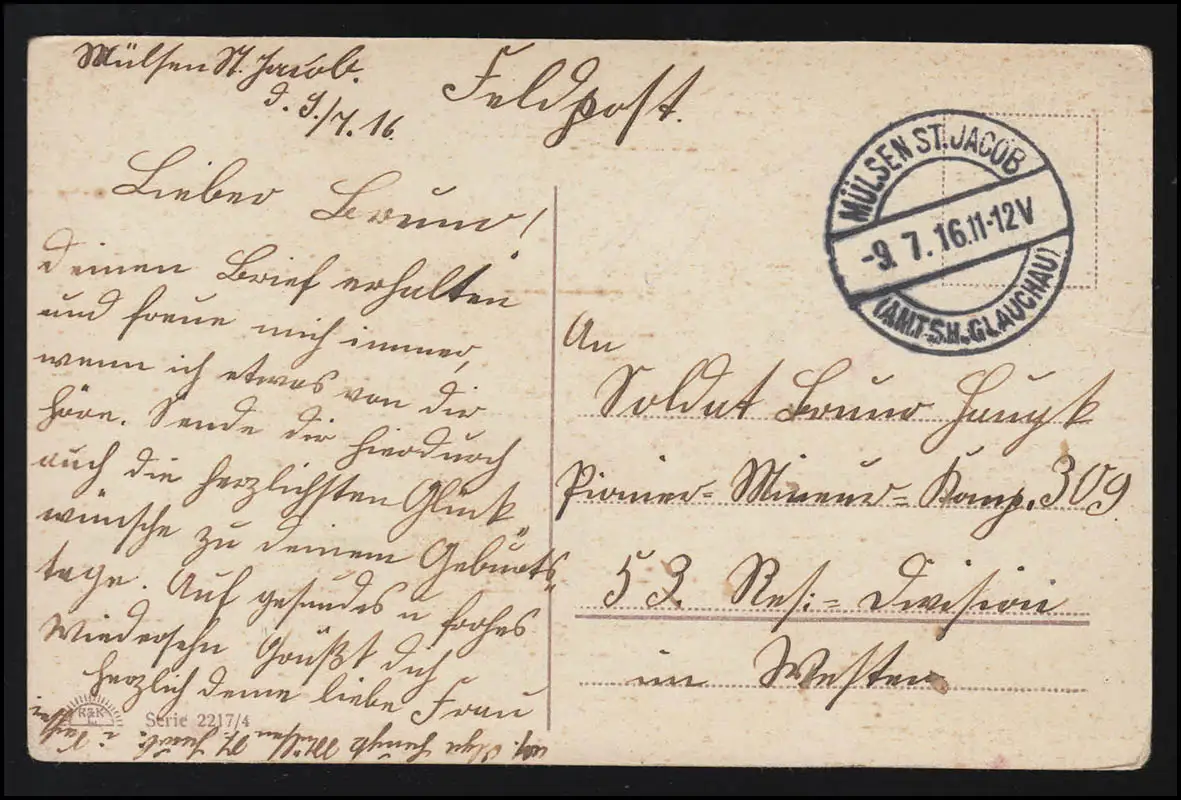 Mülsen St. Jacob.
d. 9./7. 16.
Feldpost.
Lieber Bruno!
Deinen Brief erhalten
und freue mich immer,
wenn ich etwas von dir
höre. Sende dir hierdurch
auch die herzlichsten Glück„
wünsche zu deinem Geburts„
tage. Auf gesundes u frohes
Wiedersehn Grüßt dich
herzlich deine liebe Frau
R&K
Serie 2217/4
Mülsen St. Jacob
MÜLSEN ST. JACOB
-9. 7. 16. 11-12V
(AMTSH. GLAUCHAU)
An
Soldat Bruno Haugk
Pionier= Mineur= Komp. 309
53. Res:= Division
im Westen